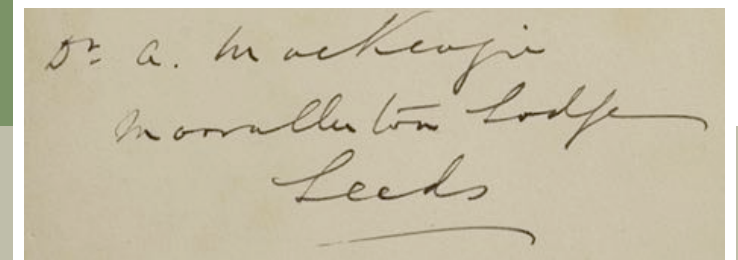 Dr. A. MacKenzie
Moorallerton Lodge
Leeds